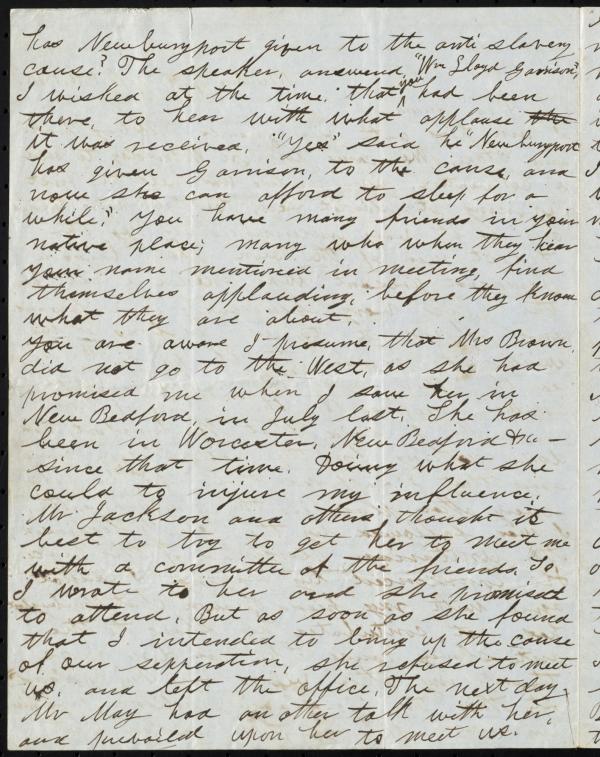 has Newburyport given to the anti slavery
cause? The speaker, answered, "Wm Lloyd Garrison",
I wished at the time, that you had been
there, to hear with what applause the
it was received. "Yes" said he "Newburyport
has given Garrison, to the cause, and
now she can afford to sleep for a
while." You have many friends in your
native place; many who when they hear
your name mentioned in meeting, find
themselves applauding, before they know
what they are about.
You are aware I presume, that Mrs Brown,
did not go to the West, as she had
promised me when I saw her in
New Bedford, in July last. She has
been in Worcester, New Bedford &c -
since that time. Doing what she
could to injure my influence.
Mr Jackson and others thought it
best to try to get her to meet me
with a committee of the friends. So
I wrote to her and she promised
to attend. But as soon as she found
that I intended to bring up the cause
of our sepperation, she refused to meet
us, and left the office. The next day
Mr May had another talk with her,
and prevailed upon her to meet us.